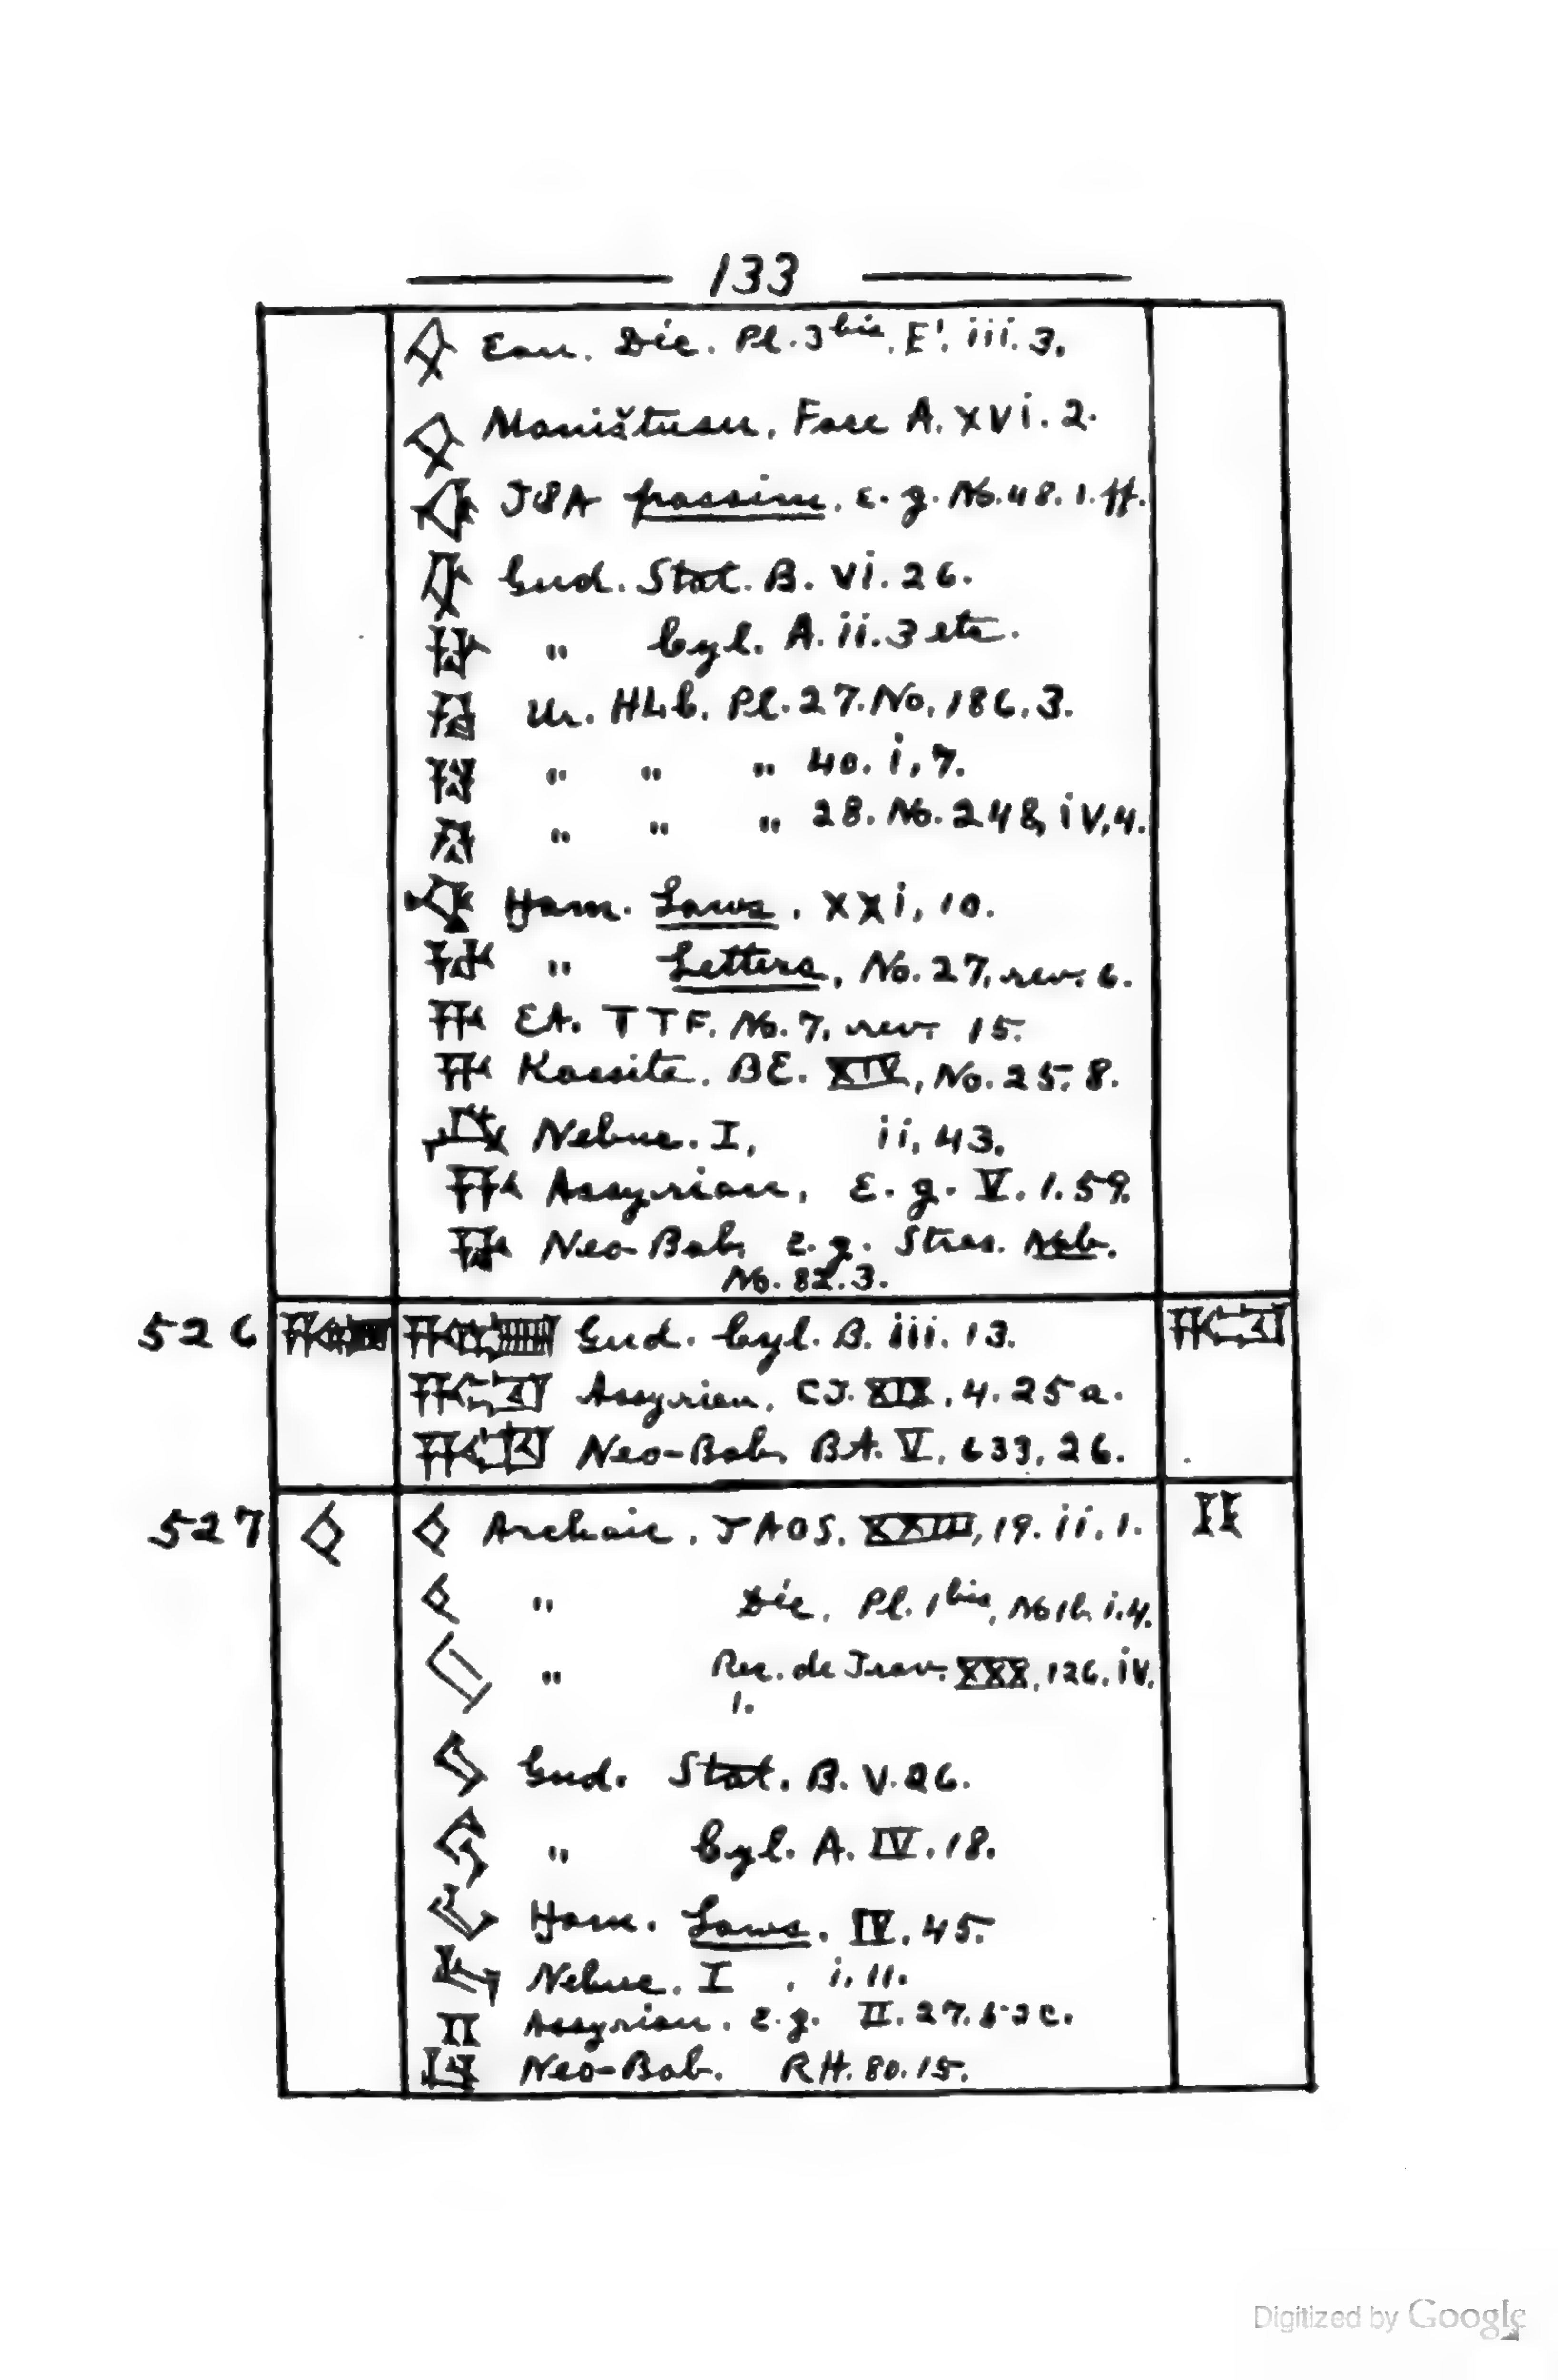 133
Ean. Déc. Pl. 3bis. E'. iii. 3.
Maništusu, Face A. xvi. 2.
passim. e. g. No. 48. 1. ff.
Gud. Stat. B. vi. 26.
" Cyl. A. ii. 3 etc.
Ur. HLC. Pl. 27. No. 186. 3.
" " " 40. i, 7.
" " " 28. No. 248, iv, 4.
Ham. Laws. xxi, 10.
" Letters, No. 27, rev. 6.
EA. TTF. No. 7, rev. 15.
Kassite. BE. XIV, No. 25. 8.
Nebuc. I, ii, 43.
Assyrian, e. g. V. 1. 59.
Neo-Bab. e. g. Stras. Nab.
No. 82. 3.
526 Gud. Cyl. B. iii. 13.
Assyrian, CT. XIX, 4. 25 a.
Neo-Bab. BA. V, 633, 26.
527 Archaic. JAOS. XXIII, 19. ii. 1.
" Déc. Pl. 1bis, i. 4.
" Rec. de Trav. XXX, 126. iv.
1.
Gud. Stat. B. V. 26.
" Cyl. A. IV. 18.
Ham. Laws. IV. 45.
Nebuc. I. i. 11.
Assyrian. e. g. II. 27.
Neo-Bab. RH. 80. 15.
Digitized by Google